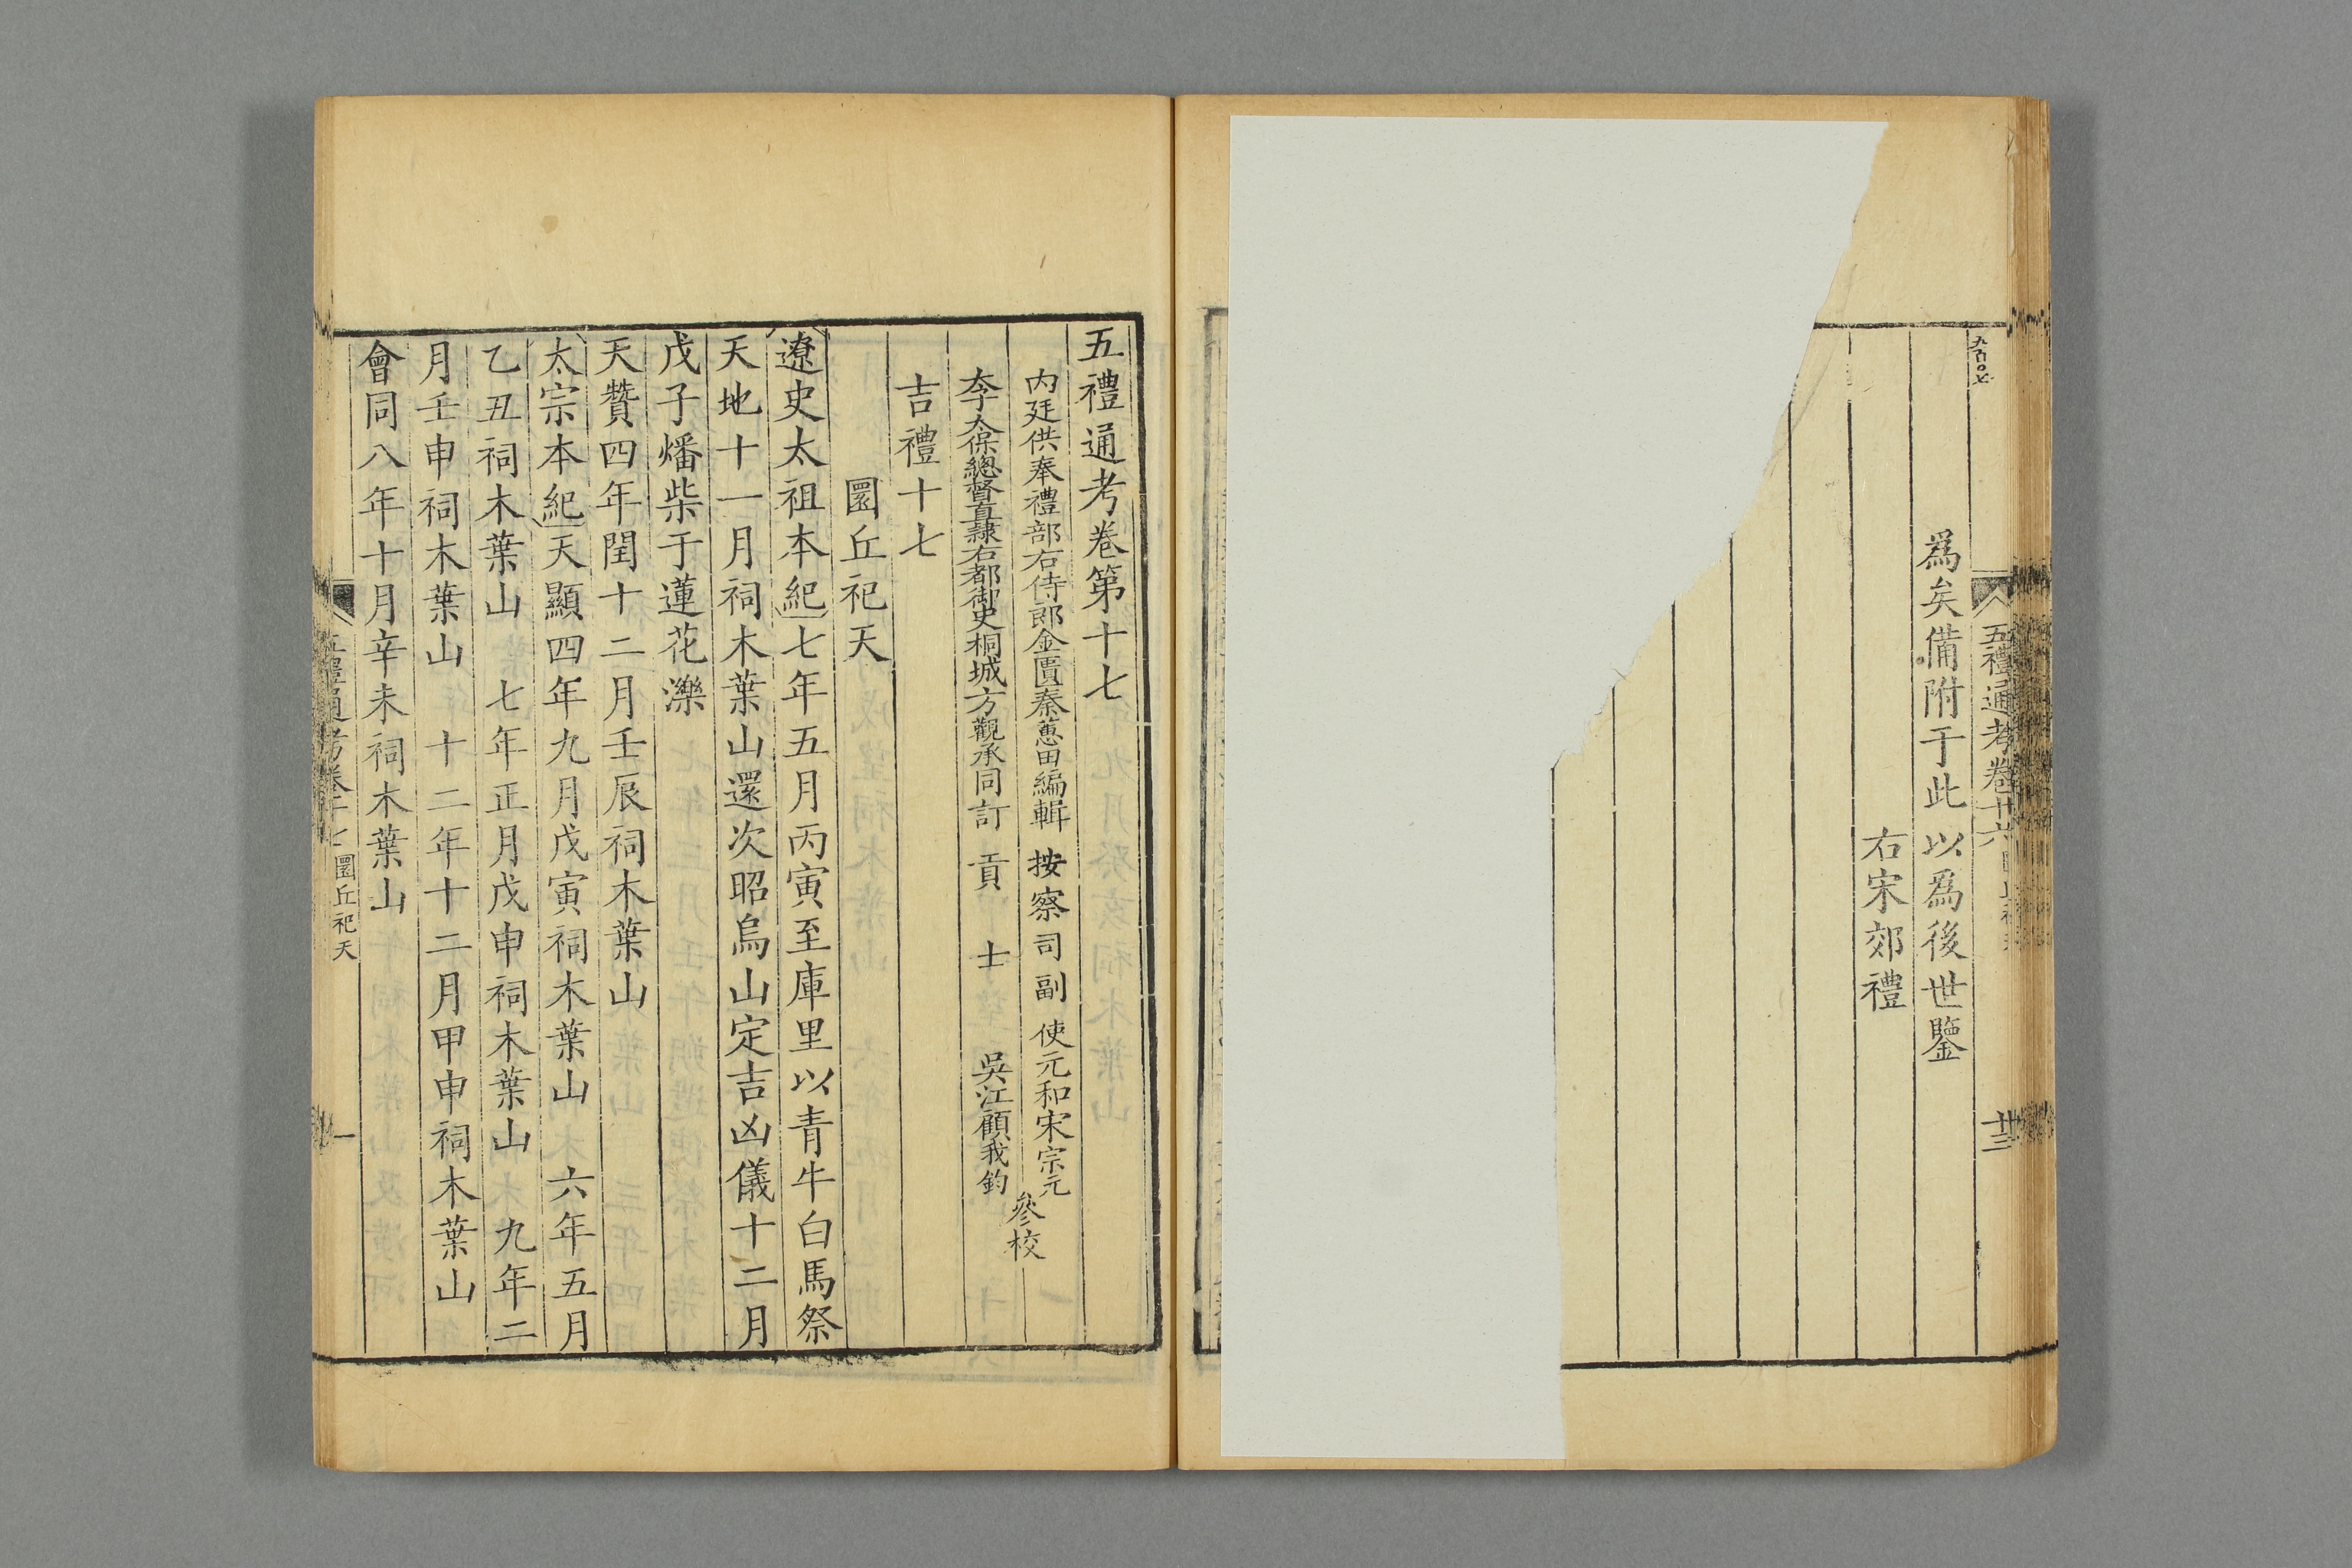 五禮通考卷十六
卅三
爲矣備附于此以爲後世鑒
右宋郊禮
五禮通考卷第十七
内廷供奉禮部右侍郎金匱秦蕙田編輯 按察司副使元和宋宗元
李太保總督直隸右都御史桐城方觀承同訂 貢士吳江顧我鈞
參校
吉禮十七
圜丘祀天
遼史太祖本紀七年五月丙寅至庫里以青牛白馬祭
天地十一月祠木葉山還次昭烏山定吉凶儀十二月
戊子燔柴于蓮花濼
天贊四年閏十二月壬辰祠木葉山
太宗本紀天顯四年九月戊寅祠木葉山 六年五月
乙丑祠木葉山 七年正月戊申祠木葉山 九年二
月壬申祠木葉山 十二年十二月甲申祠木葉山
會同八年十月辛未祠木葉山
五禮通考卷十七 圜丘祀天
一